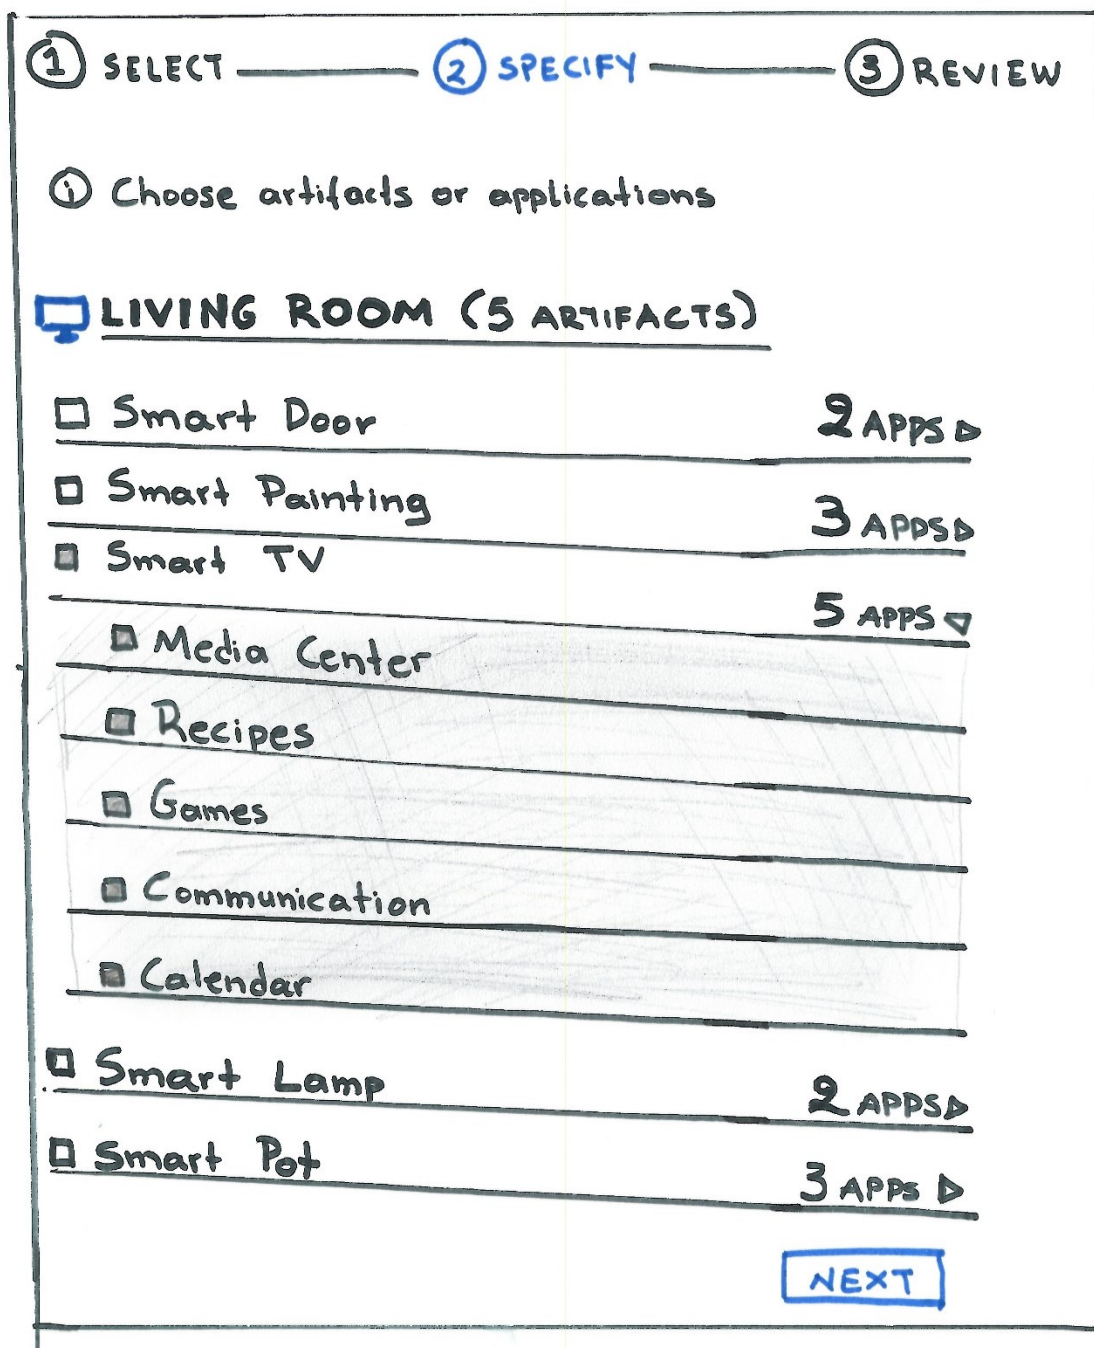 1 SELECT 2 SPECIFY 3 REVIEW
i Choose artifacts or applications
LIVING ROOM (5 ARTIFACTS)
Smart Door 2 APPS
Smart Painting 3 APPS
Smart TV 5 APPS
Media Center
Recipes
Games
Communication
Calendar
Smart Lamp 2 APPS
Smart Pot 3 APPS
NEXT